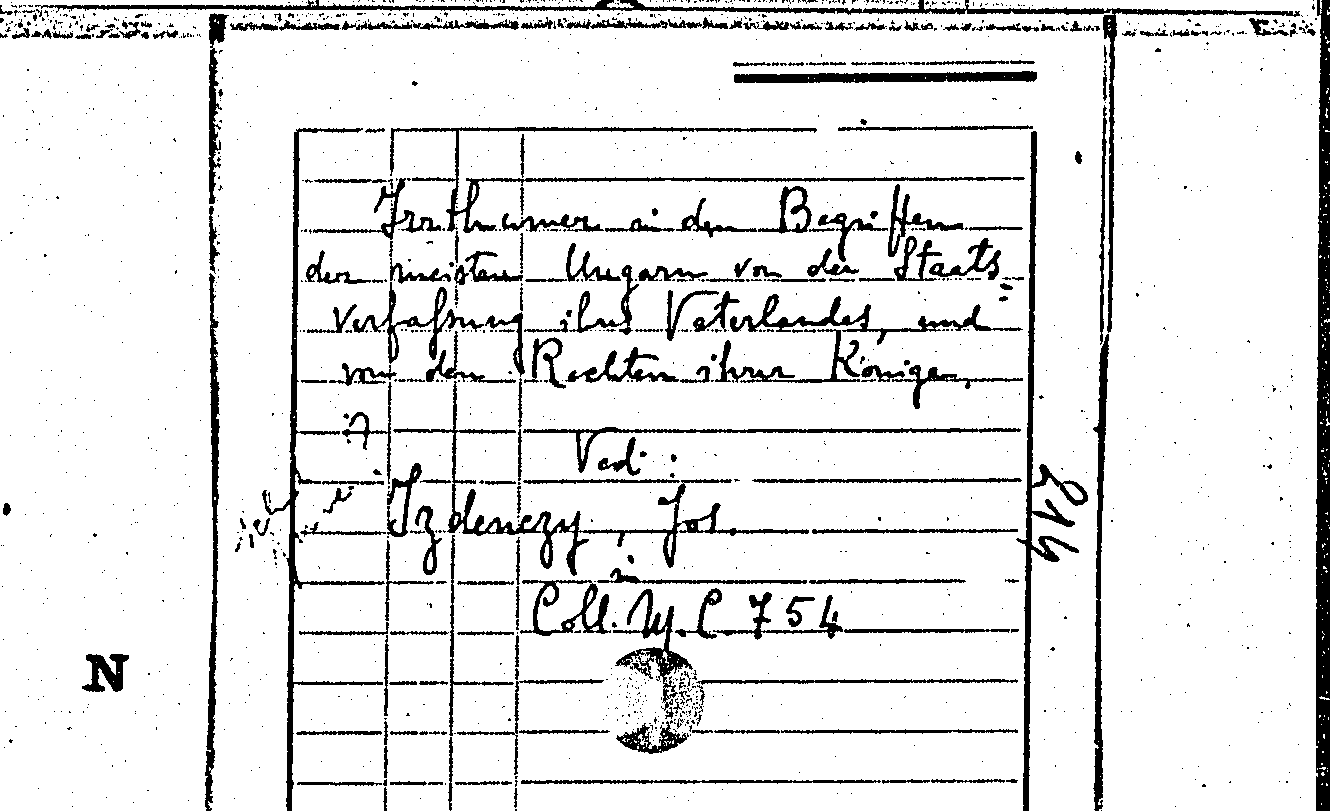 Irrthuemer in den Begriffen
der meisten Ungarn von der Staats=
verfassung ihres Vaterlandes, und
von den Rechten ihrer Könige.
Vad:
Izdenczy, Jos.
in
Coll. M. C. 754
214
N